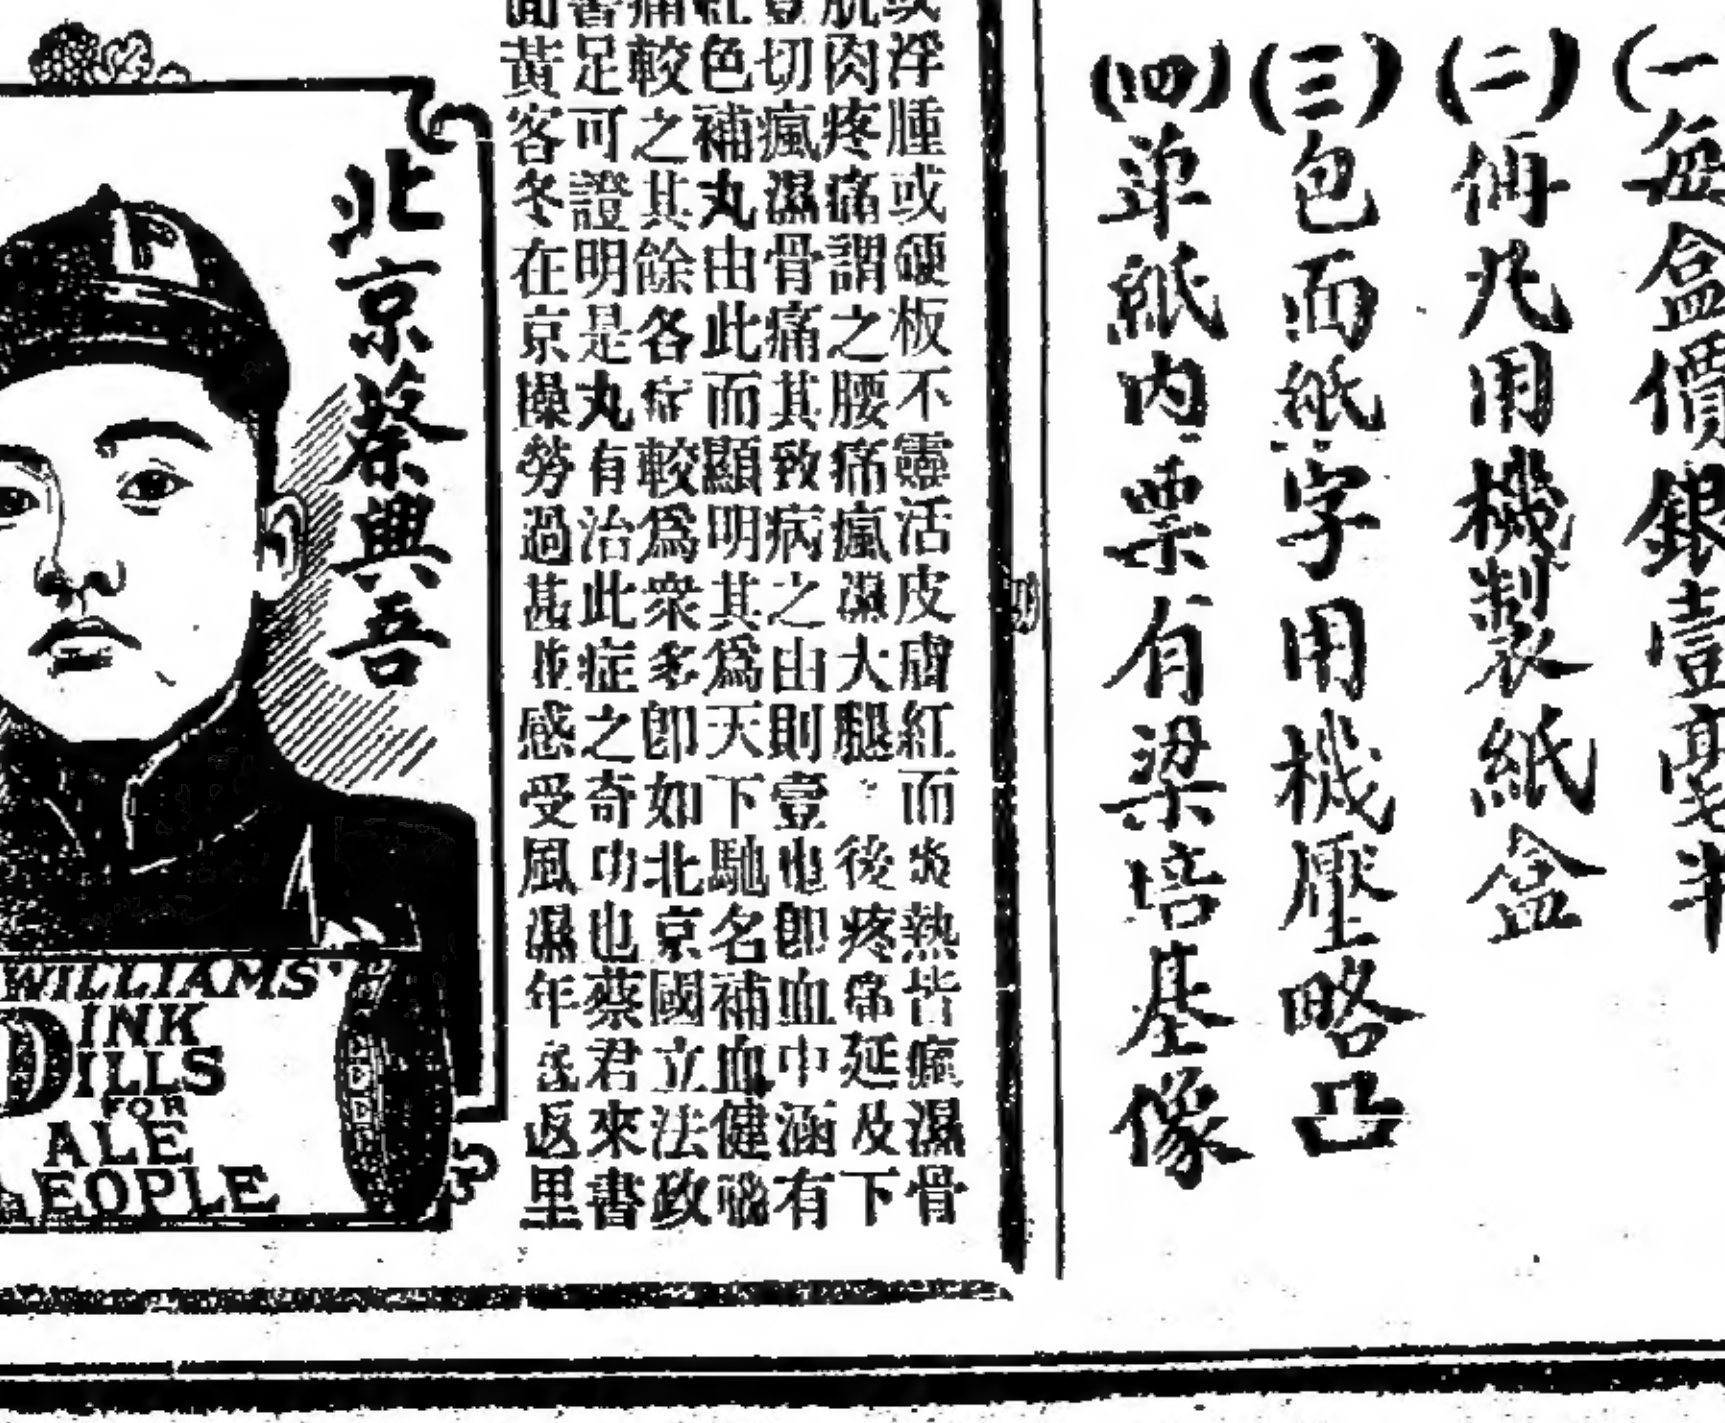 (一)每盒價銀壹毫半
(二)丸用機製紙盒
(三)包面紙字用機壓略凸
(四)单紙内票有梁培基像
或浮腫或硬板不靈活皮膚紅而炎熱皆瘋濕骨
肌肉疼痛謂之腰痛瘋濕大腿後疼痛延及下
壹切瘋濕骨痛其致病之由則壹也卽血中涵有
紅色補丸由此而顯明其爲天下馳名補血健腦
痛較之其餘各症較爲衆多卽如北京國立法政
書足可證明是丸有治此症之奇功也蔡君來書
面黃客冬在京操勞過甚並感受風濕年返里
北京蔡興吾
WILLIAMS'
PINK
PILLS
FOR
ALE
PEOPLE